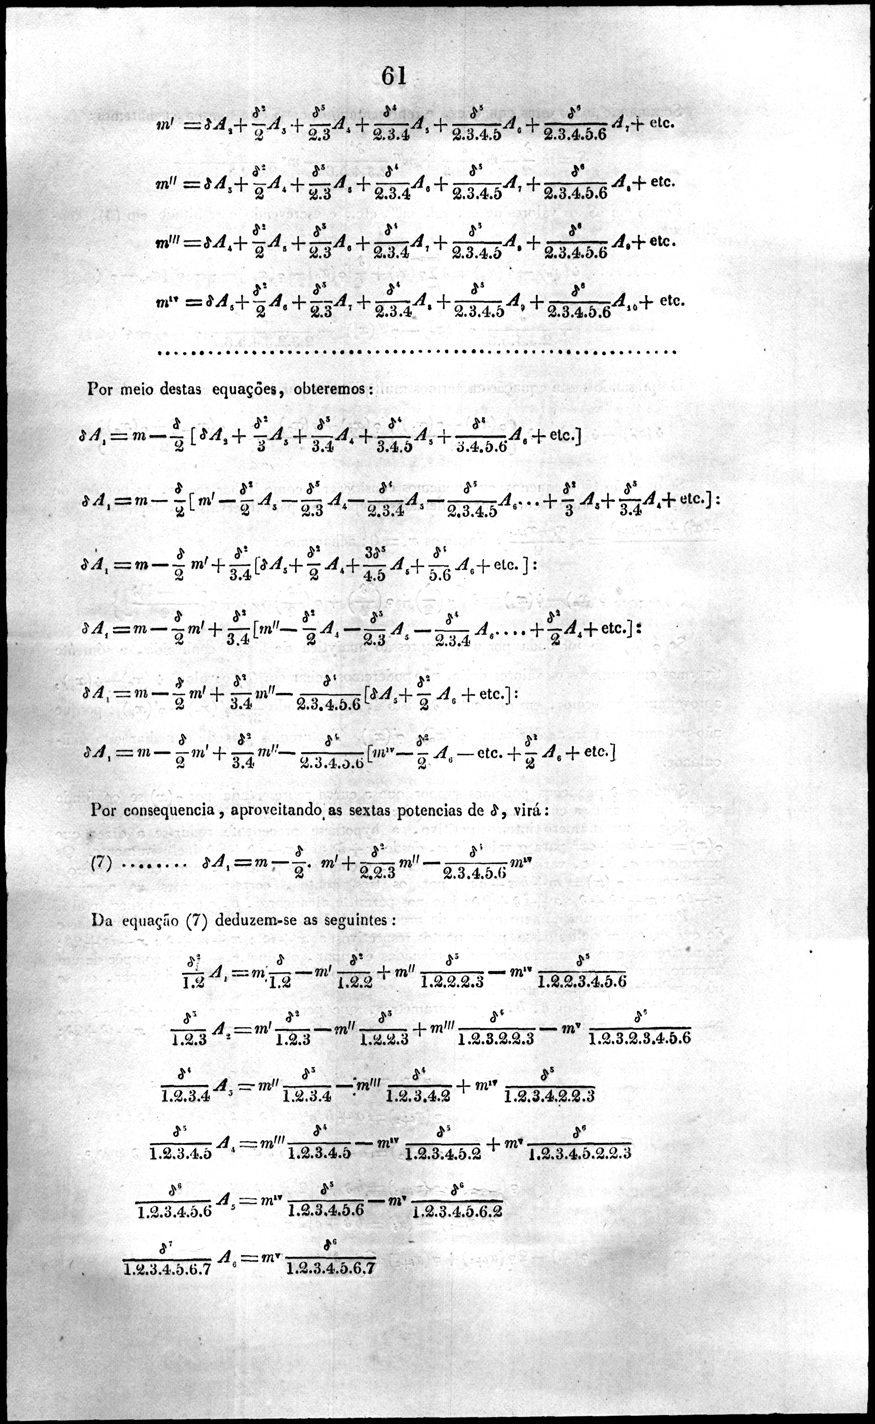 61
m′ = δA₂ + δ²/2 A₃ + δ³/2.3 A₄ + δ⁴/2.3.4 A₅ + δ⁵/2.3.4.5 A₆ + δ⁶/2.3.4.5.6 A₇ + etc.
m″ = δA₃ + δ²/2 A₄ + δ³/2.3 A₅ + δ⁴/2.3.4 A₆ + δ⁵/2.3.4.5 A₇ + δ⁶/2.3.4.5.6 A₈ + etc.
m‴ = δA₄ + δ²/2 A₅ + δ³/2.3 A₆ + δ⁴/2.3.4 A₇ + δ⁵/2.3.4.5 A₈ + δ⁶/2.3.4.5.6 A₉ + etc.
mⁱᵛ = δA₅ + δ²/2 A₆ + δ³/2.3 A₇ + δ⁴/2.3.4 A₈ + δ⁵/2.3.4.5 A₉ + δ⁶/2.3.4.5.6 A₁₀ + etc.
Por meio destas equações, obteremos:
δA₁ = m — δ/2 [δA₂ + δ²/3 A₃ + δ³/3.4 A₄ + δ⁴/3.4.5 A₅ + δ⁵/3.4.5.6 A₆ + etc.]
δA₁ = m — δ/2 [m′ — δ²/2 A₃ — δ³/2.3 A₄ — δ⁴/2.3.4 A₅ — δ⁵/2.3.4.5 A₆... + δ²/3 A₃ + δ³/3.4 A₄ + etc.]:
δA₁ = m — δ/2 m′ + δ²/3.4 [δA₃ + δ²/2 A₄ + 3δ³/4.5 A₅ + δ⁴/5.6 A₆ + etc.]:
δA₁ = m — δ/2 m′ + δ²/3.4 [m″ — δ²/2 A₄ — δ³/2.3 A₅ — δ⁴/2.3.4 A₆.... + δ²/2 A₄ + etc.]:
δA₁ = m — δ/2 m′ + δ²/3.4 m″ — δ⁴/2.3.4.5.6 [δA₅ + δ²/2 A₆ + etc.]:
δA₁ = m — δ/2 m′ + δ²/3.4 m″ — δ⁴/2.3.4.5.6 [mⁱᵛ — δ²/2 A₆ — etc. + δ²/2 A₆ + etc.]
Por consequencia, aproveitando as sextas potencias de δ, virá:
(7) ........ δA₁ = m — δ/2. m′ + δ²/2.2.3 m″ — δ⁴/2.3.4.5.6 mⁱᵛ
Da equação (7) deduzem-se as seguintes:
δ²/1.2 A₁ = m δ/1.2 — m′ δ²/1.2.2 + m″ δ³/1.2.2.2.3 — mⁱᵛ δ⁵/1.2.2.3.4.5.6
δ³/1.2.3 A₂ = m′ δ²/1.2.3 — m″ δ³/1.2.2.3 + m‴ δ⁴/1.2.3.2.2.3 — mᵛ δ⁶/1.2.3.2.3.4.5.6
δ⁴/1.2.3.4 A₃ = m″ δ³/1.2.3.4 — m‴ δ⁴/1.2.3.4.2 + mⁱᵛ δ⁵/1.2.3.4.2.2.3
δ⁵/1.2.3.4.5 A₄ = m‴ δ⁴/1.2.3.4.5 — mⁱᵛ δ⁵/1.2.3.4.5.2 + mᵛ δ⁶/1.2.3.4.5.2.2.3
δ⁶/1.2.3.4.5.6 A₅ = mⁱᵛ δ⁵/1.2.3.4.5.6 — mᵛ δ⁶/1.2.3.4.5.6.2
δ⁷/1.2.3.4.5.6.7 A₆ = mᵛ δ⁶/1.2.3.4.5.6.7